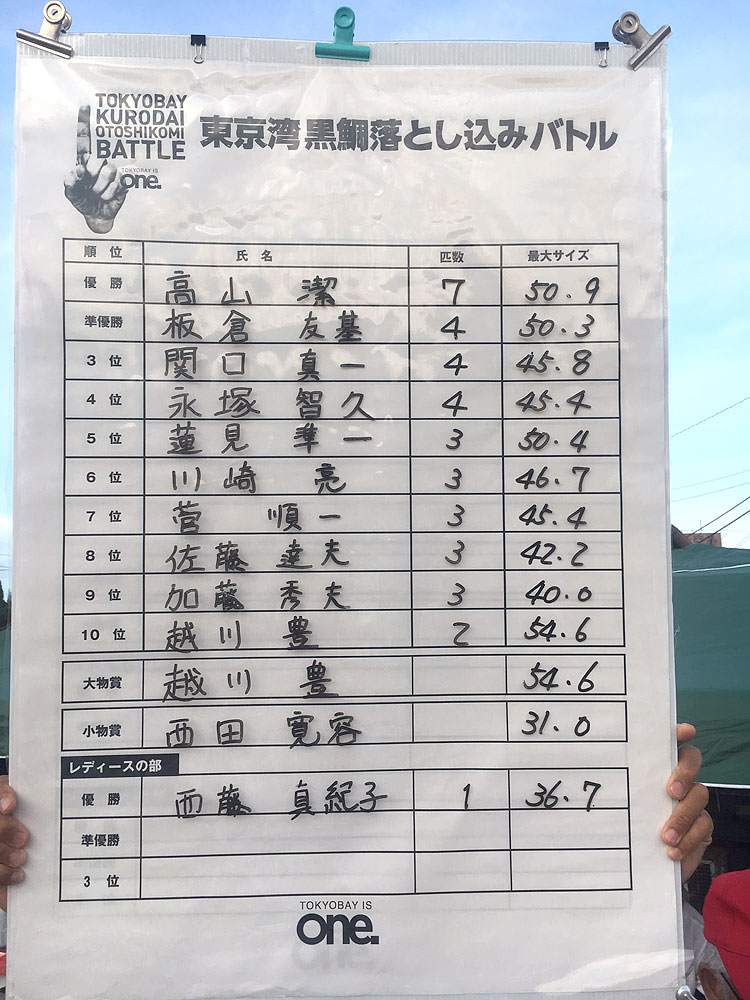 TOKYOBAY
KURODAI
OTOSHIKOMI
BATTLE
TOKYOBAY IS
one.
東京湾黒鯛落とし込みバトル
順位 氏名 匹数 最大サイズ
優勝 高山 潔 7 50.9
準優勝 板倉 友基 4 50.3
3位 関口 真一 4 45.8
4位 永塚 智久 4 45.4
5位 蓮見 準一 3 50.4
6位 川崎 亮 3 46.7
7位 菅 順一 3 45.4
8位 佐藤 達夫 3 42.2
9位 加藤 秀夫 3 40.0
10位 越川 豊 2 54.6
大物賞 越川 豊 54.6
小物賞 西田 寛容 31.0
レディースの部
優勝 西藤 真紀子 1 36.7
準優勝
3位
TOKYOBAY IS
one.